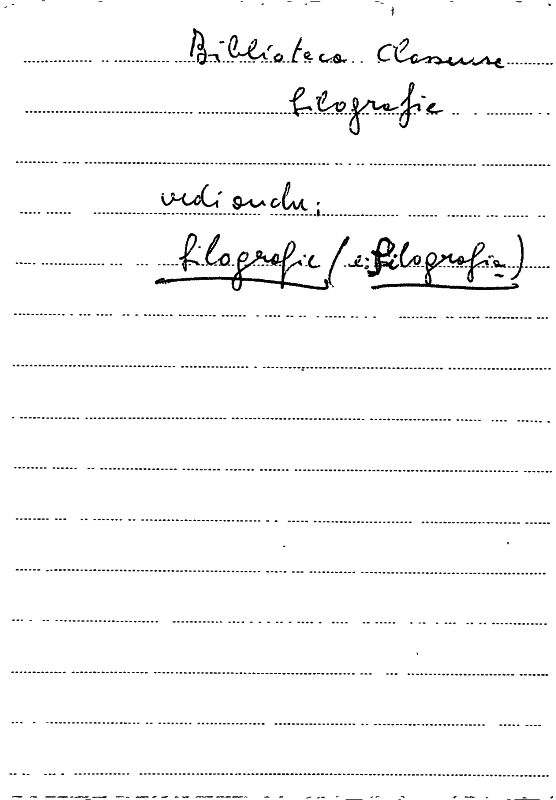 Biblioteca Classense
filografie
vedi anche:
filografie (e: filografia)